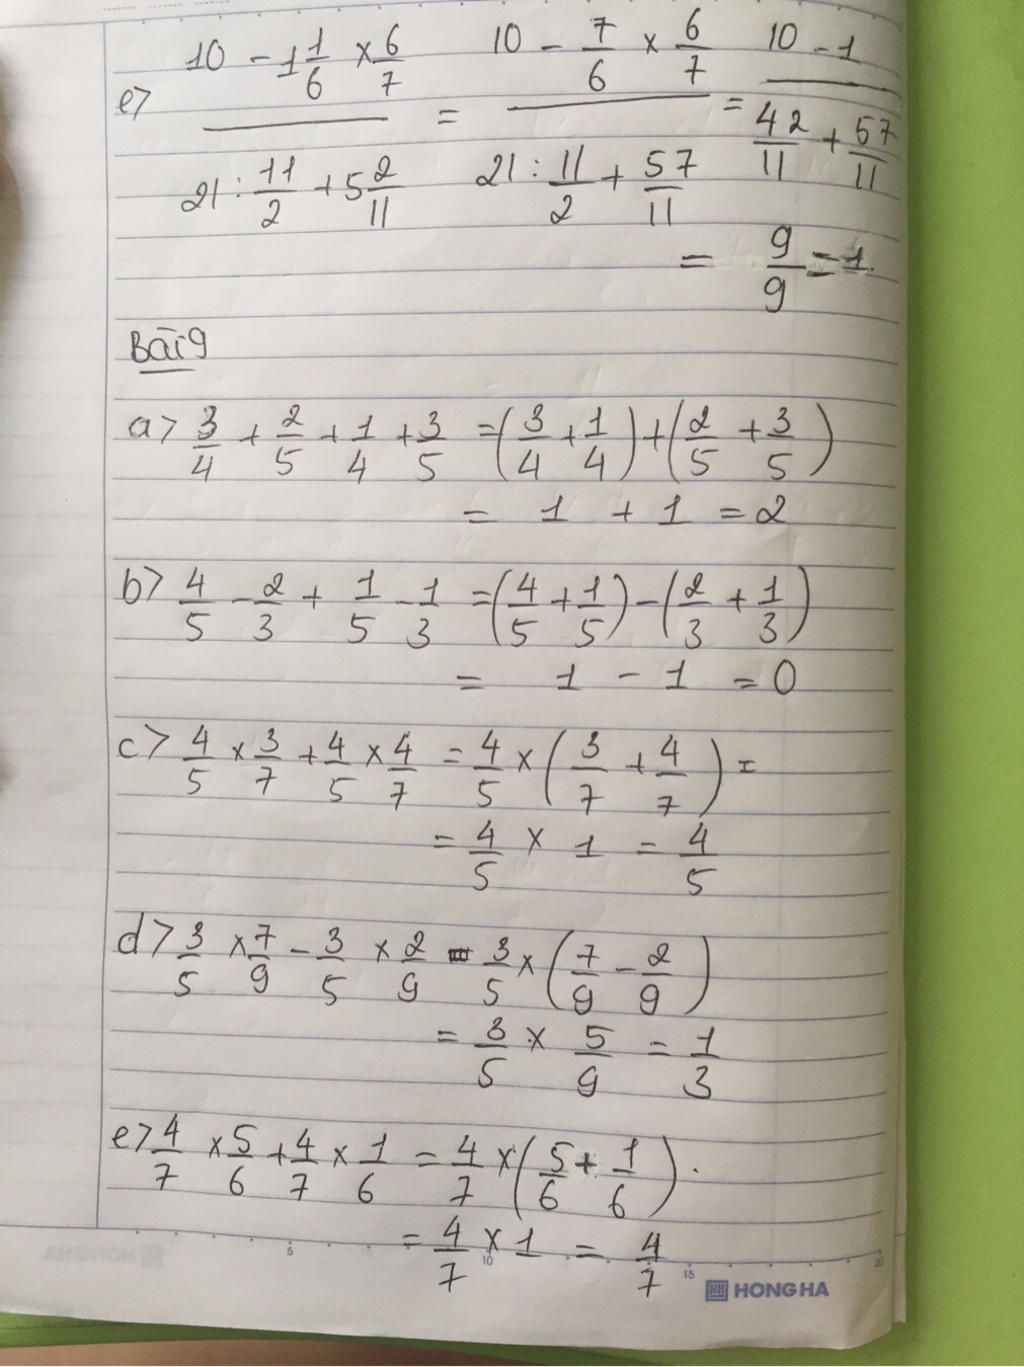 e> (10 - 1 1/6 × 6/7) / (21 : 11/2 + 5 2/11) = (10 - 7/6 × 6/7) / (21 : 11/2 + 57/11) = (10 - 1) / (42/11 + 57/11)
= 9/9 = 1
Bài 9
a> 3/4 + 2/5 + 1/4 + 3/5 = (3/4 + 1/4) + (2/5 + 3/5)
= 1 + 1 = 2
b> 4/5 - 2/3 + 1/5 - 1/3 = (4/5 + 1/5) - (2/3 + 1/3)
= 1 - 1 = 0
c> 4/5 × 3/7 + 4/5 × 4/7 = 4/5 × (3/7 + 4/7) =
= 4/5 × 1 = 4/5
d> 3/5 × 7/9 - 3/5 × 2/9 = 3/5 × (7/9 - 2/9)
= 3/5 × 5/9 = 1/3
e> 4/7 × 5/6 + 4/7 × 1/6 = 4/7 × (5/6 + 1/6).
= 4/7 × 1 = 4/7
5 10 15 20
HONG HA